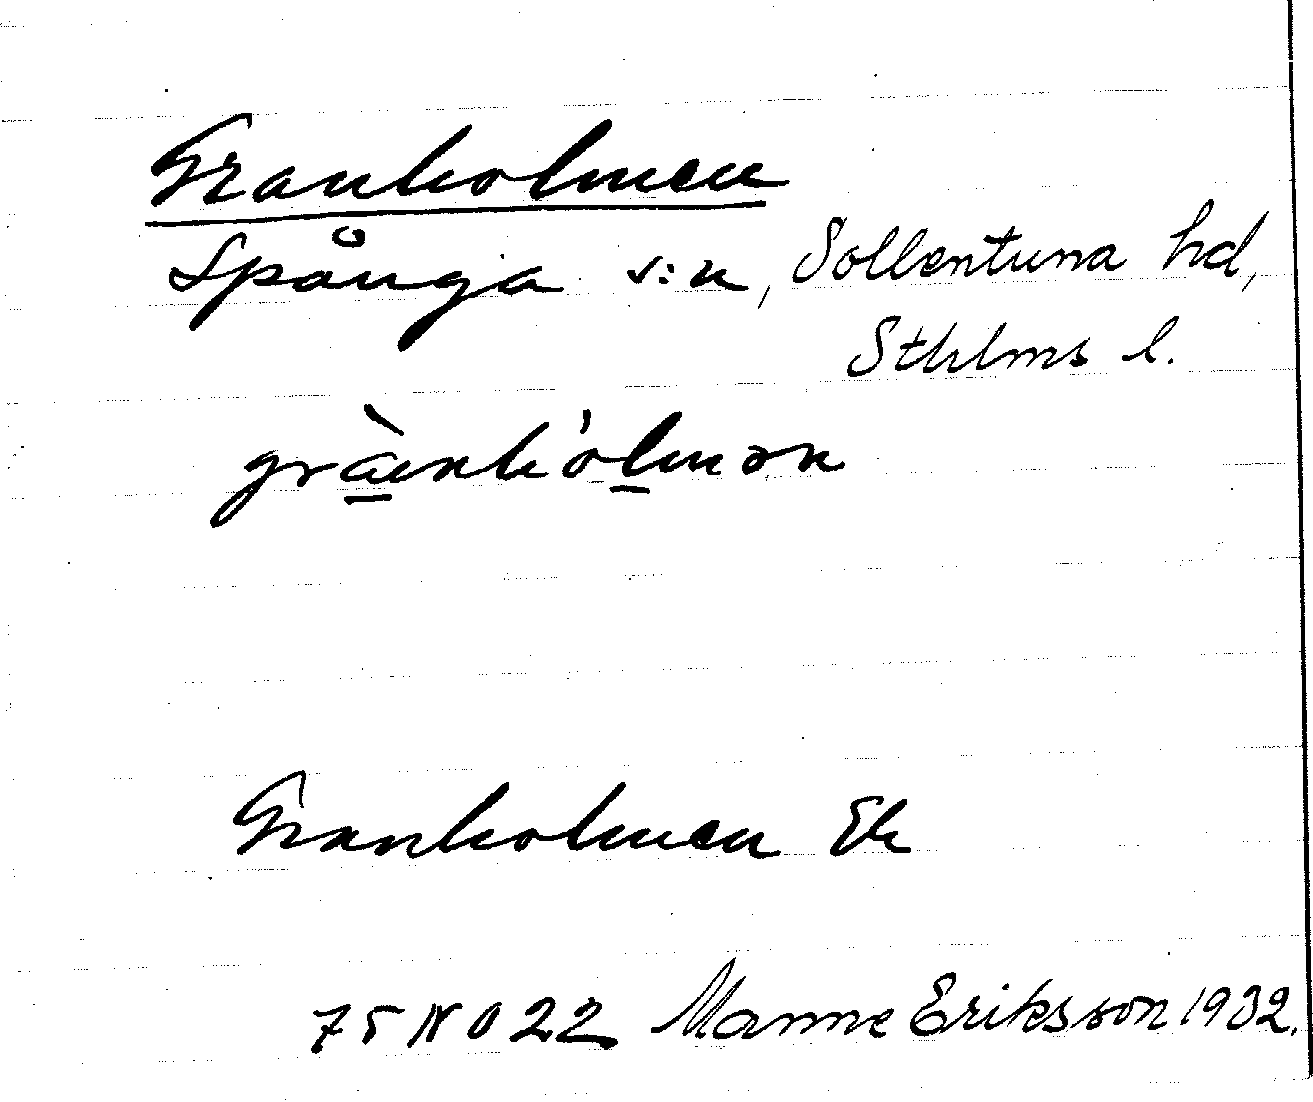 Granholmen
Spånga s:n, Sollentuna hd,
Sthlms l.
grànhólmən
Granholmen Ek
75 NO 22 Manne Eriksson 1932.